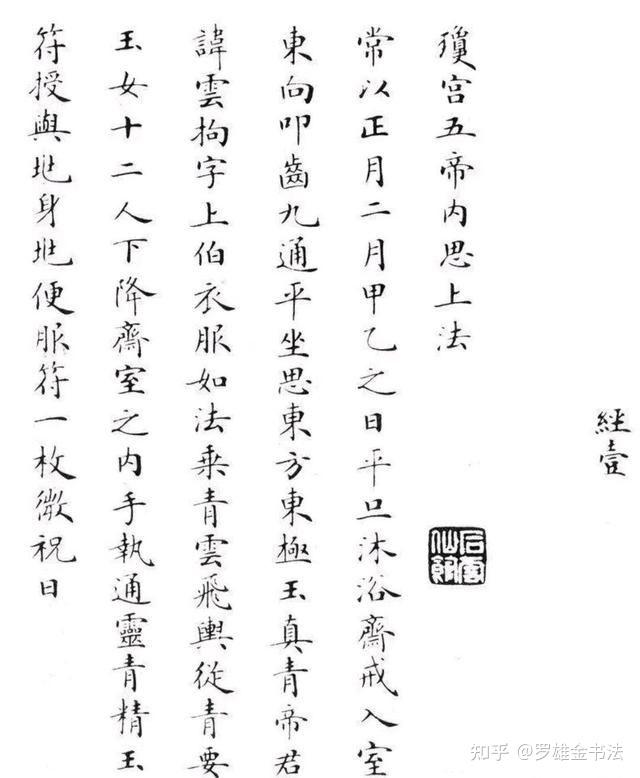 經壹
瓊宮五帝內思上法
常以正月二月甲乙之日平旦沐浴齋戒入室
東向叩齒九通平坐思東方東極玉真青帝君
諱雲拘字上伯衣服如法乘青雲飛輿從青要
玉女十二人下降齋室之內手執通靈青精玉
符授與兆身兆便服符一枚微祝曰
知乎 @罗雄金书法